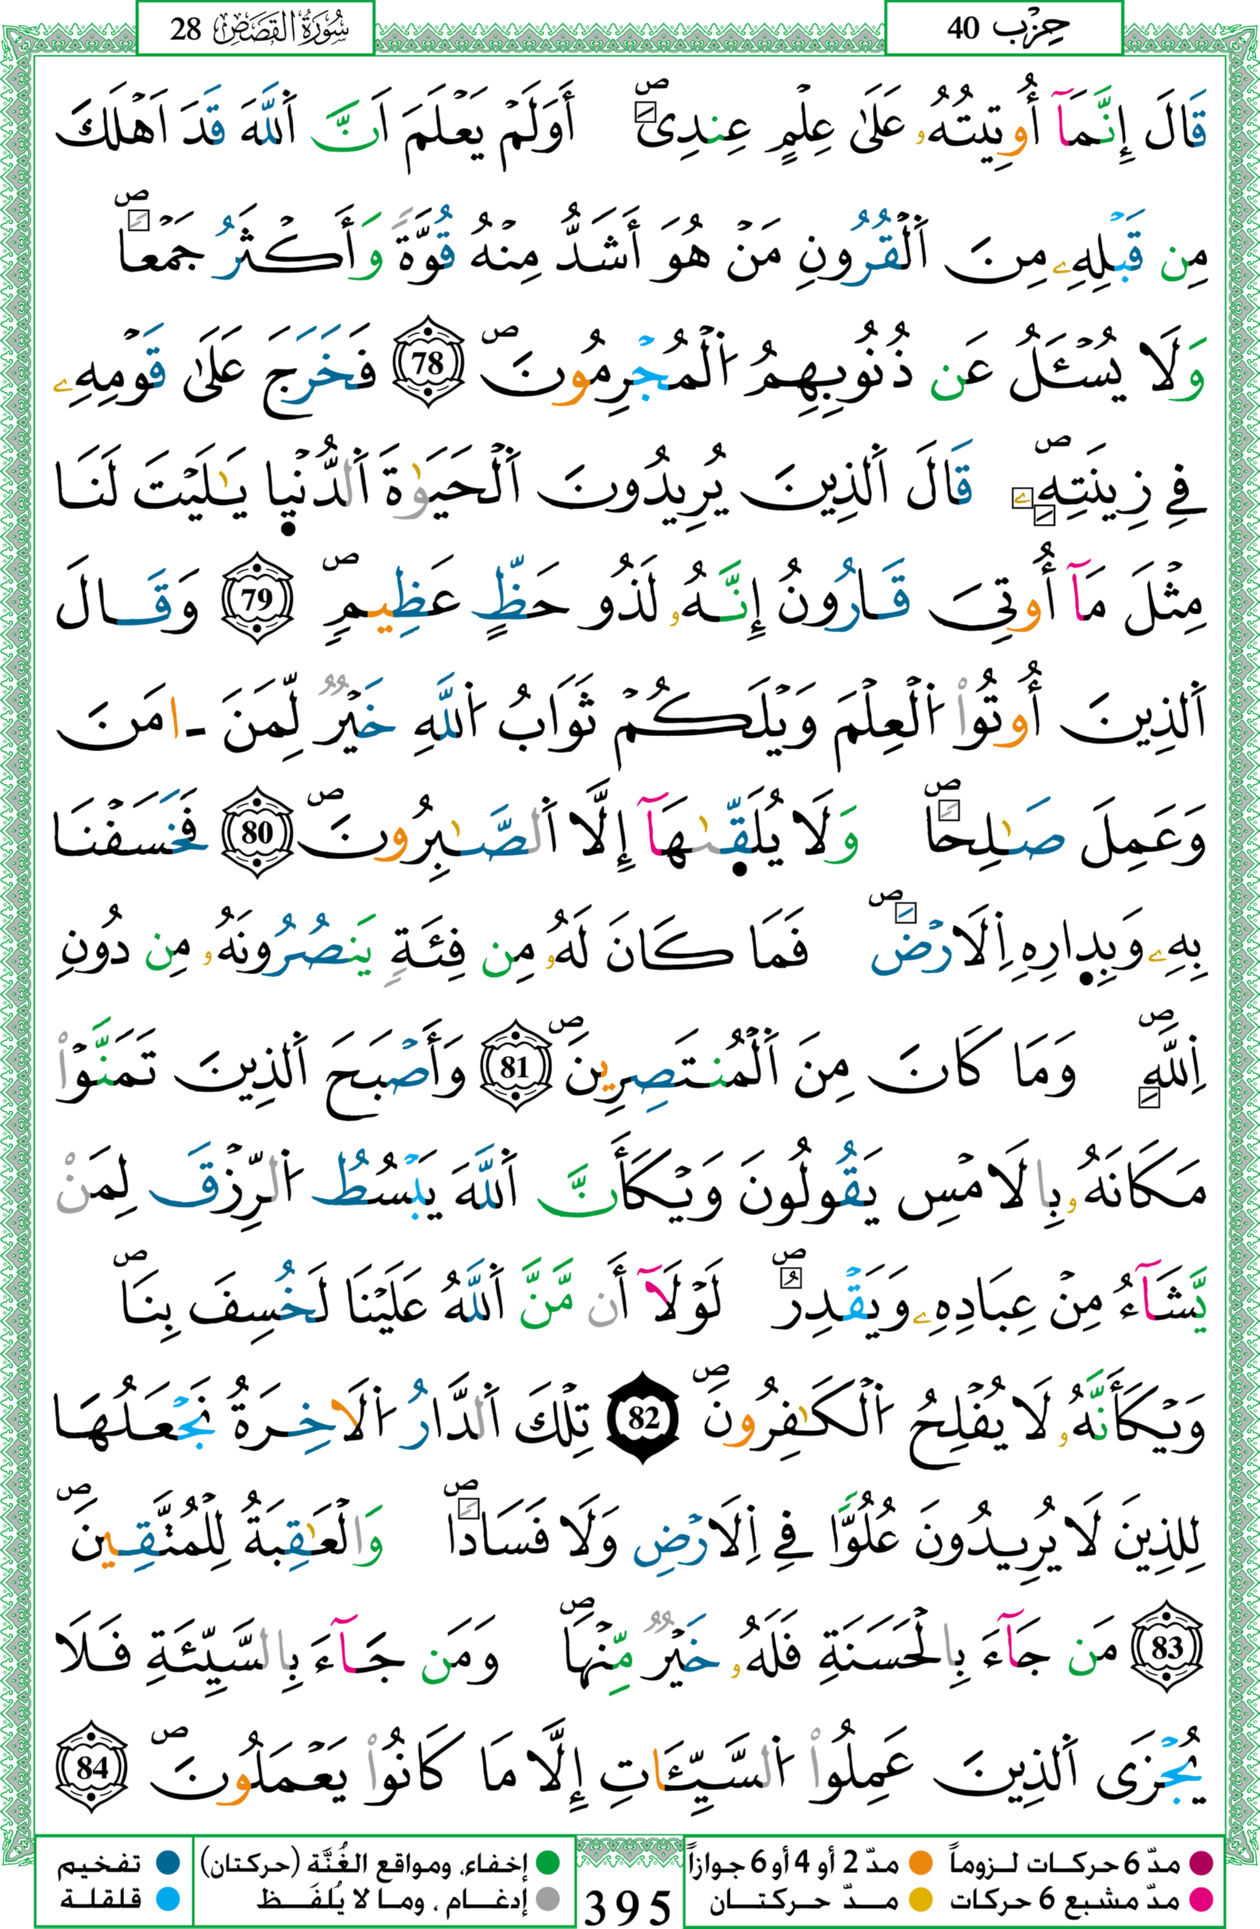 سُورَةُ القَصَصِ 28
حِزْب 40
قَالَ إِنَّمَآ أُوتِيتُهُۥ عَلَىٰ عِلْمٍ عِندِىٓ ۖ أَوَلَمْ يَعْلَمَ اَنَّ اَ۬للَّهَ قَدَ اَهْلَكَ
مِن قَبْلِهِۦ مِنَ اَ۬لْقُرُونِ مَنْ هُوَ أَشَدُّ مِنْهُ قُوَّةً وَأَكْثَرُ جَمْعاً ۖ
وَلَا يُسْـَٔلُ عَن ذُنُوبِهِمُ اُ۬لْمُجْرِمُونَ ۖ 78 فَخَرَجَ عَلَىٰ قَوْمِهِۦ
فِے زِينَتِهِۦ ۖ قَالَ اَ۬لذِينَ يُرِيدُونَ اَ۬لْحَيَوٰةَ اَ۬لدُّنْيٜا يَٰلَيْتَ لَنَا
مِثْلَ مَآ أُوتِىَ قَارُونُ إِنَّهُۥ لَذُو حَظٍّ عَظِيمٍ ۖ 79 وَقَالَ
اَ۬لذِينَ أُوتُواْ اُ۬لْعِلْمَ وَيْلَكُمْ ثَوَابُ اُ۬للَّهِ خَيْرٞ لِّمَنَ ـ اٰمَنَ
وَعَمِلَ صَٰلِحاً ۖ وَلَا يُلَقّٜىٰهَآ إِلَّا اَ۬لصَّٰبِرُونَ ۖ 80 فَخَسَفْنَا
بِهِۦ وَبِدٜارِهِ اِ۬لَارْضَ ۖ فَمَا كَانَ لَهُۥ مِن فِئَةٍ يَنصُرُونَهُۥ مِن دُونِ
اِ۬للَّهِ ۖ وَمَا كَانَ مِنَ اَ۬لْمُنتَصِرِينَ ۖ 81 وَأَصْبَحَ اَ۬لذِينَ تَمَنَّوْاْ
مَكَانَهُۥ بِالَامْسِ يَقُولُونَ وَيْكَأَنَّ اَ۬للَّهَ يَبْسُطُ اُ۬لرِّزْقَ لِمَنْ
يَّشَآءُ مِنْ عِبَادِهِۦ وَيَقْدِرُ ۖ لَوْلَآ أَن مَّنَّ اَ۬للَّهُ عَلَيْنَا لَخُسِفَ بِنَا ۖ
وَيْكَأَنَّهُۥ لَا يُفْلِحُ اُ۬لْكَٰفِرُونَ ۖ 82 تِلْكَ اَ۬لدَّارُ اُ۬لَاخِرَةُ نَجْعَلُهَا
لِلذِينَ لَا يُرِيدُونَ عُلُوّاً فِے اِ۬لَارْضِ وَلَا فَسَاداً ۖ وَالْعَٰقِبَةُ لِلْمُتَّقِينَ ۖ
83 مَن جَآءَ بِالْحَسَنَةِ فَلَهُۥ خَيْرٞ مِّنْهَا ۖ وَمَن جَآءَ بِالسَّيِّئَةِ فَلَا
يُجْزَى اَ۬لذِينَ عَمِلُواْ اُ۬لسَّيِّـَٔاتِ إِلَّا مَا كَانُواْ يَعْمَلُونَ ۖ 84
مدّ 6 حركات لـزوماً مدّ 2 أو 4 أو 6 جوازاً
مدّ مشبع 6 حركات مــدّ حـركتــان
395
إخفاء، ومواقع الغُنَّة (حركتان) تفخيم
إدغـام ، ومـا لا يُلفَـظ قلقلة